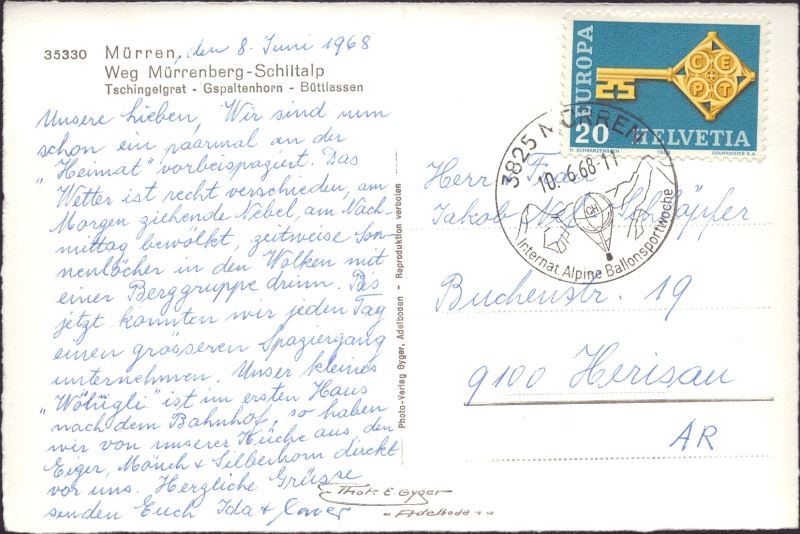 35330 Mürren, den 8. Juni 1968
Weg Mürrenberg-Schiltalp
Tschingelgrat - Gspaltenhorn - Büttlassen
Unsere Lieben, Wir sind nun
schon ein paarmal an der
"Heimat" vorbeispaziert. Das
Wetter ist recht verschieden, am
Morgen ziehende Nebel, am Nach-
mittag bewölkt, zeitweise Son-
nenlöcher in den Wolken mit
einer Berggruppe drinn. Bis
jetzt konnten wir jeden Tag
einen grösseren Spaziergang
unternehmen. Unser kleines
"Wöhngli" ist im ersten Haus
nach dem Bahnhof, so haben
wir von unserer Küche aus den
Eiger, Mönch & Silberhorn direkt
vor uns. Herzliche Grüsse
senden Euch Ida & Xaver
Photo-Verlag Gyger, Adelboden - Reproduktion verboten
Phot. E. Gyger
Adelboden
EUROPA
CEPT
20 HELVETIA
H. SCHWARZENBACH COURVOISIER S.A.
3825 MÜRREN
10.6.68-11
CH
Internat. Alpine Ballonsportwoche
Herr
Jakob Schläpfer
Buchenstr. 19
9100 Herisau
AR